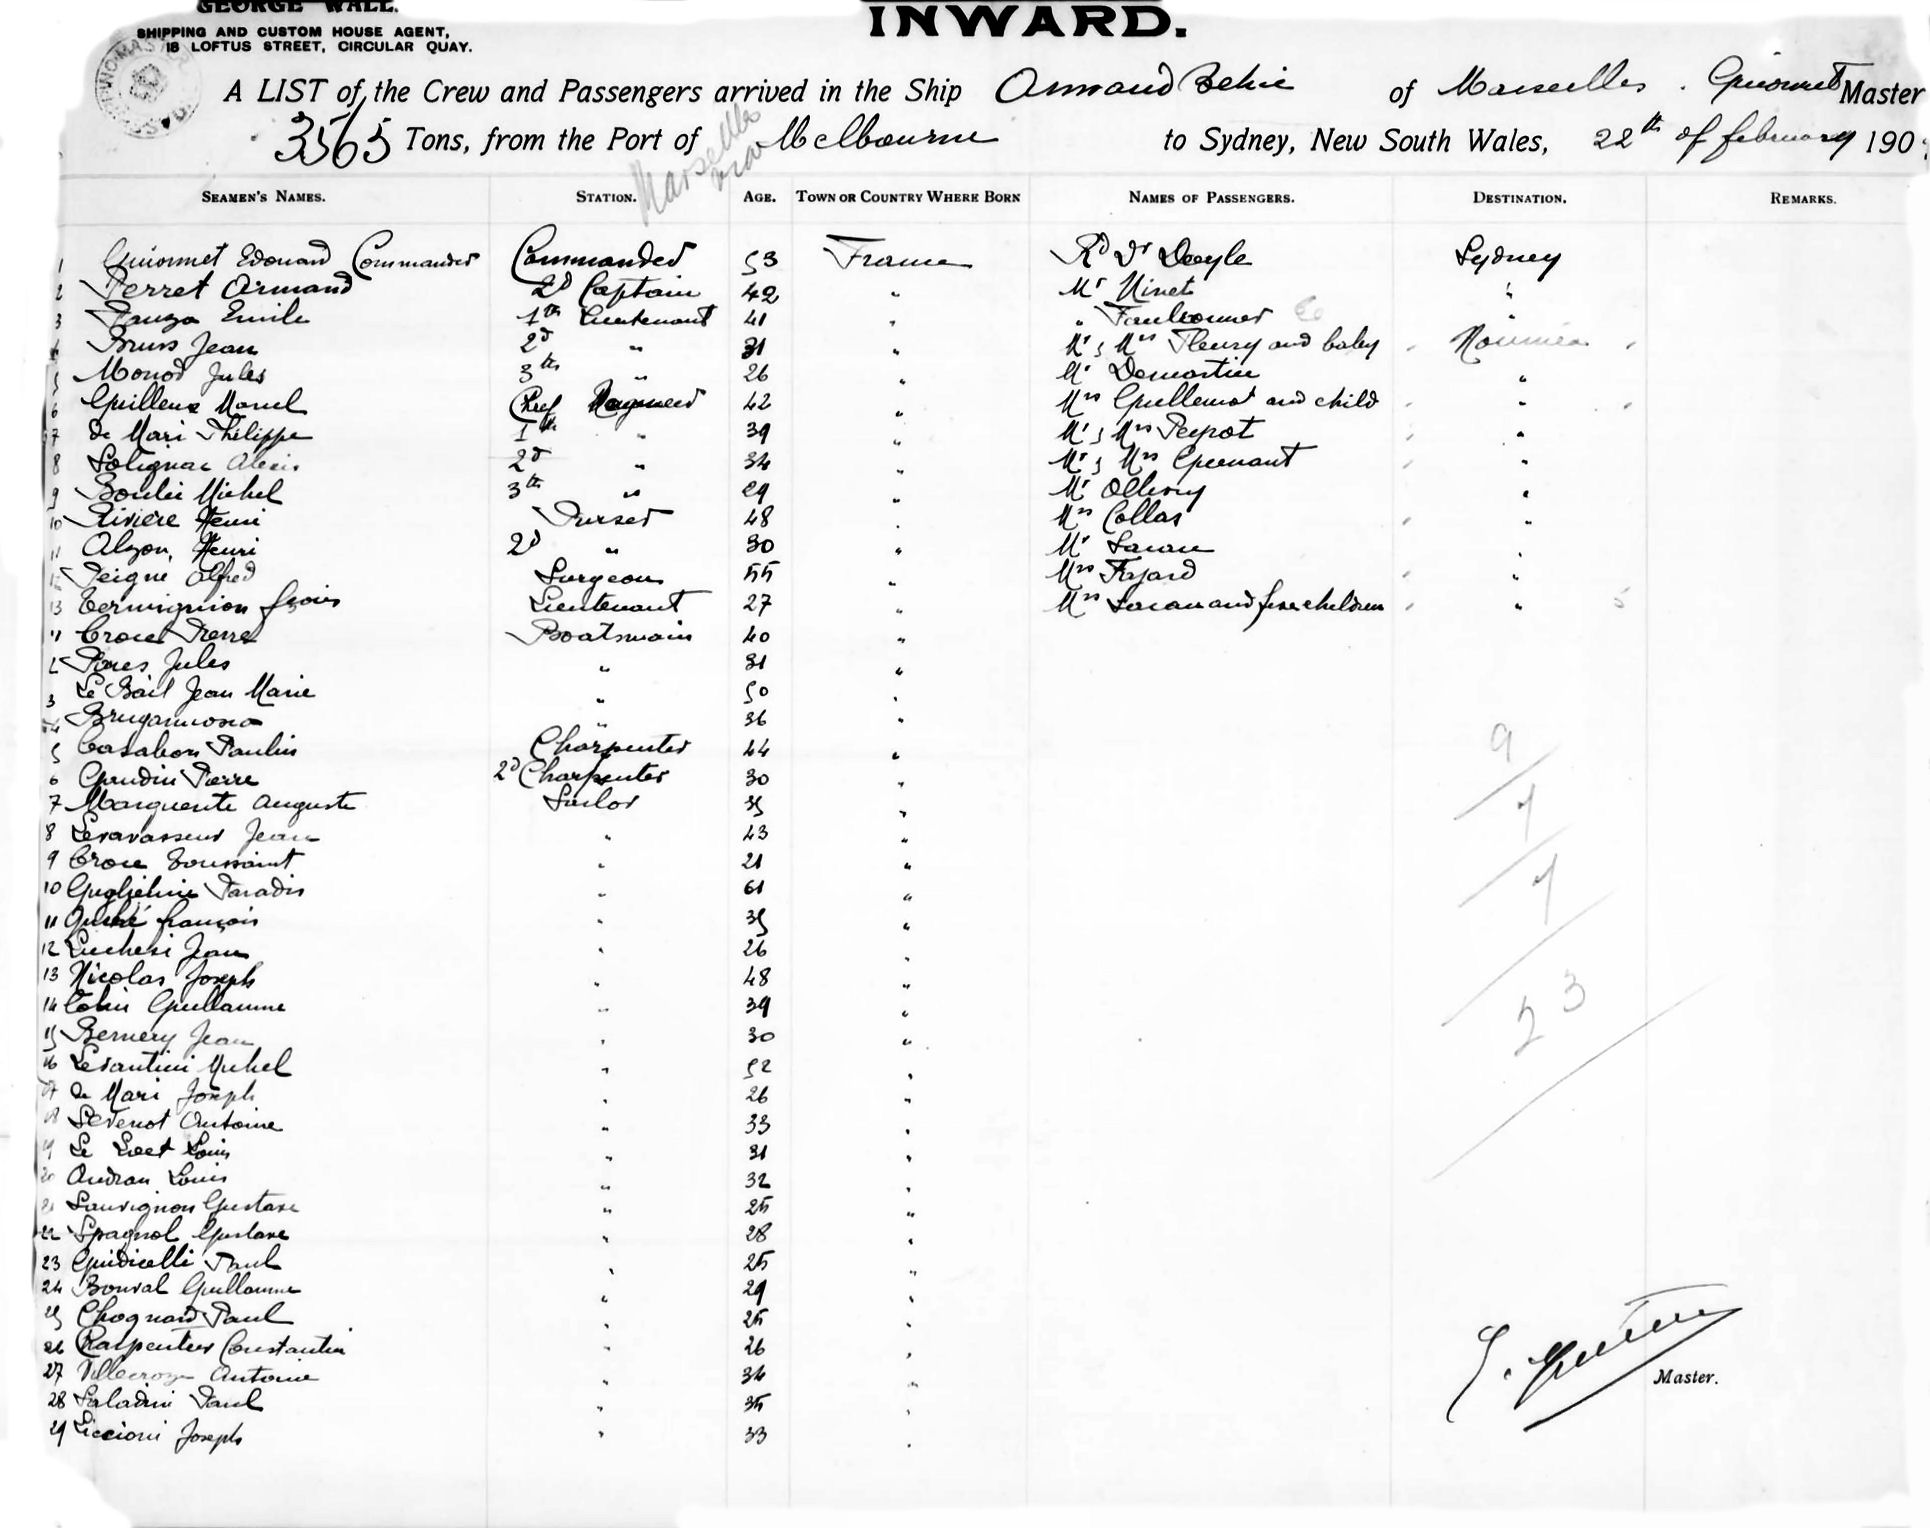 GEORGE WALL.
SHIPPING AND CUSTOM HOUSE AGENT,
18 LOFTUS STREET, CIRCULAR QUAY.
INWARD.
A LIST of the Crew and Passengers arrived in the Ship Armand Behic of Marseilles. Guionnet Master
3565 Tons, from the Port of Marseille via Melbourne to Sydney, New South Wales, 22th of february 190
SEAMEN'S NAMES. STATION. AGE. TOWN OR COUNTRY WHERE BORN NAMES OF PASSENGERS. DESTINATION. REMARKS.
1 Guionnet Edouard Commander Commander 53 France Rd Dr Doyle Sydney
2 Perret Armand 2d Captain 42 " Mr Ninet "
3 Emile 1th Lieutenant 41 " " "
4 Jean 2d " 31 " Mr & Mrs Fleury and baby Noumea
5 Monod Jules 3th " 26 " Mr Demartin "
6 Chief 42 " Mrs Guillemot and child "
7 de Mari Philippe 1th " 39 " Mr & Mrs Peyrot "
8 Solignac Alexis 2d " 34 " Mr & Mrs "
9 Michel 3th " 29 " Mr "
10 Rivière Henri Purser 48 " Mrs Collas "
11 Henri 2d " 30 " Mr "
12 Teigné Alfred Surgeon 55 " Mrs Fajard "
13 Lieutenant 27 " Mrs and five children " 5
1 Croce Pierre Boatswain 40 "
2 Pares Jules " 31 "
3 Le Bail Jean Marie " 50 "
4 " 36 "
5 Casabon Paulin Charpenter 44 "
6 Gaudin Pierre 2d Charpenter 30 "
7 Marguerite Auguste Sailor 35 "
8 Levavasseur Jean " 43 "
9 Croce Toussaint " 21 "
10 Paradis " 61 "
11 françois " 35 "
12 Luchesi Jean " 26 "
13 Nicolas Joseph " 48 "
14 Guillaume " 39 "
15 Bernery Jean " 30 "
16 Levantini Michel " 52 "
17 de Mari Joseph " 26 "
18 Sevenot Antoine " 33 "
19 Le Louis " 31 "
20 Audran Louis " 32 "
21 Sauvignon Gustave " 25 "
22 Spagnol Gustave " 28 "
23 Guidicelli Paul " 25 "
24 Bonval Guillaume " 29 "
25 Chognard Paul " 25 "
26 Charpentier Constantin " 26 "
27 Antoine " 34 "
28 Saladini Paul " 35 "
29 Liccioni Joseph " 33 "
9
1
1
23
Master.